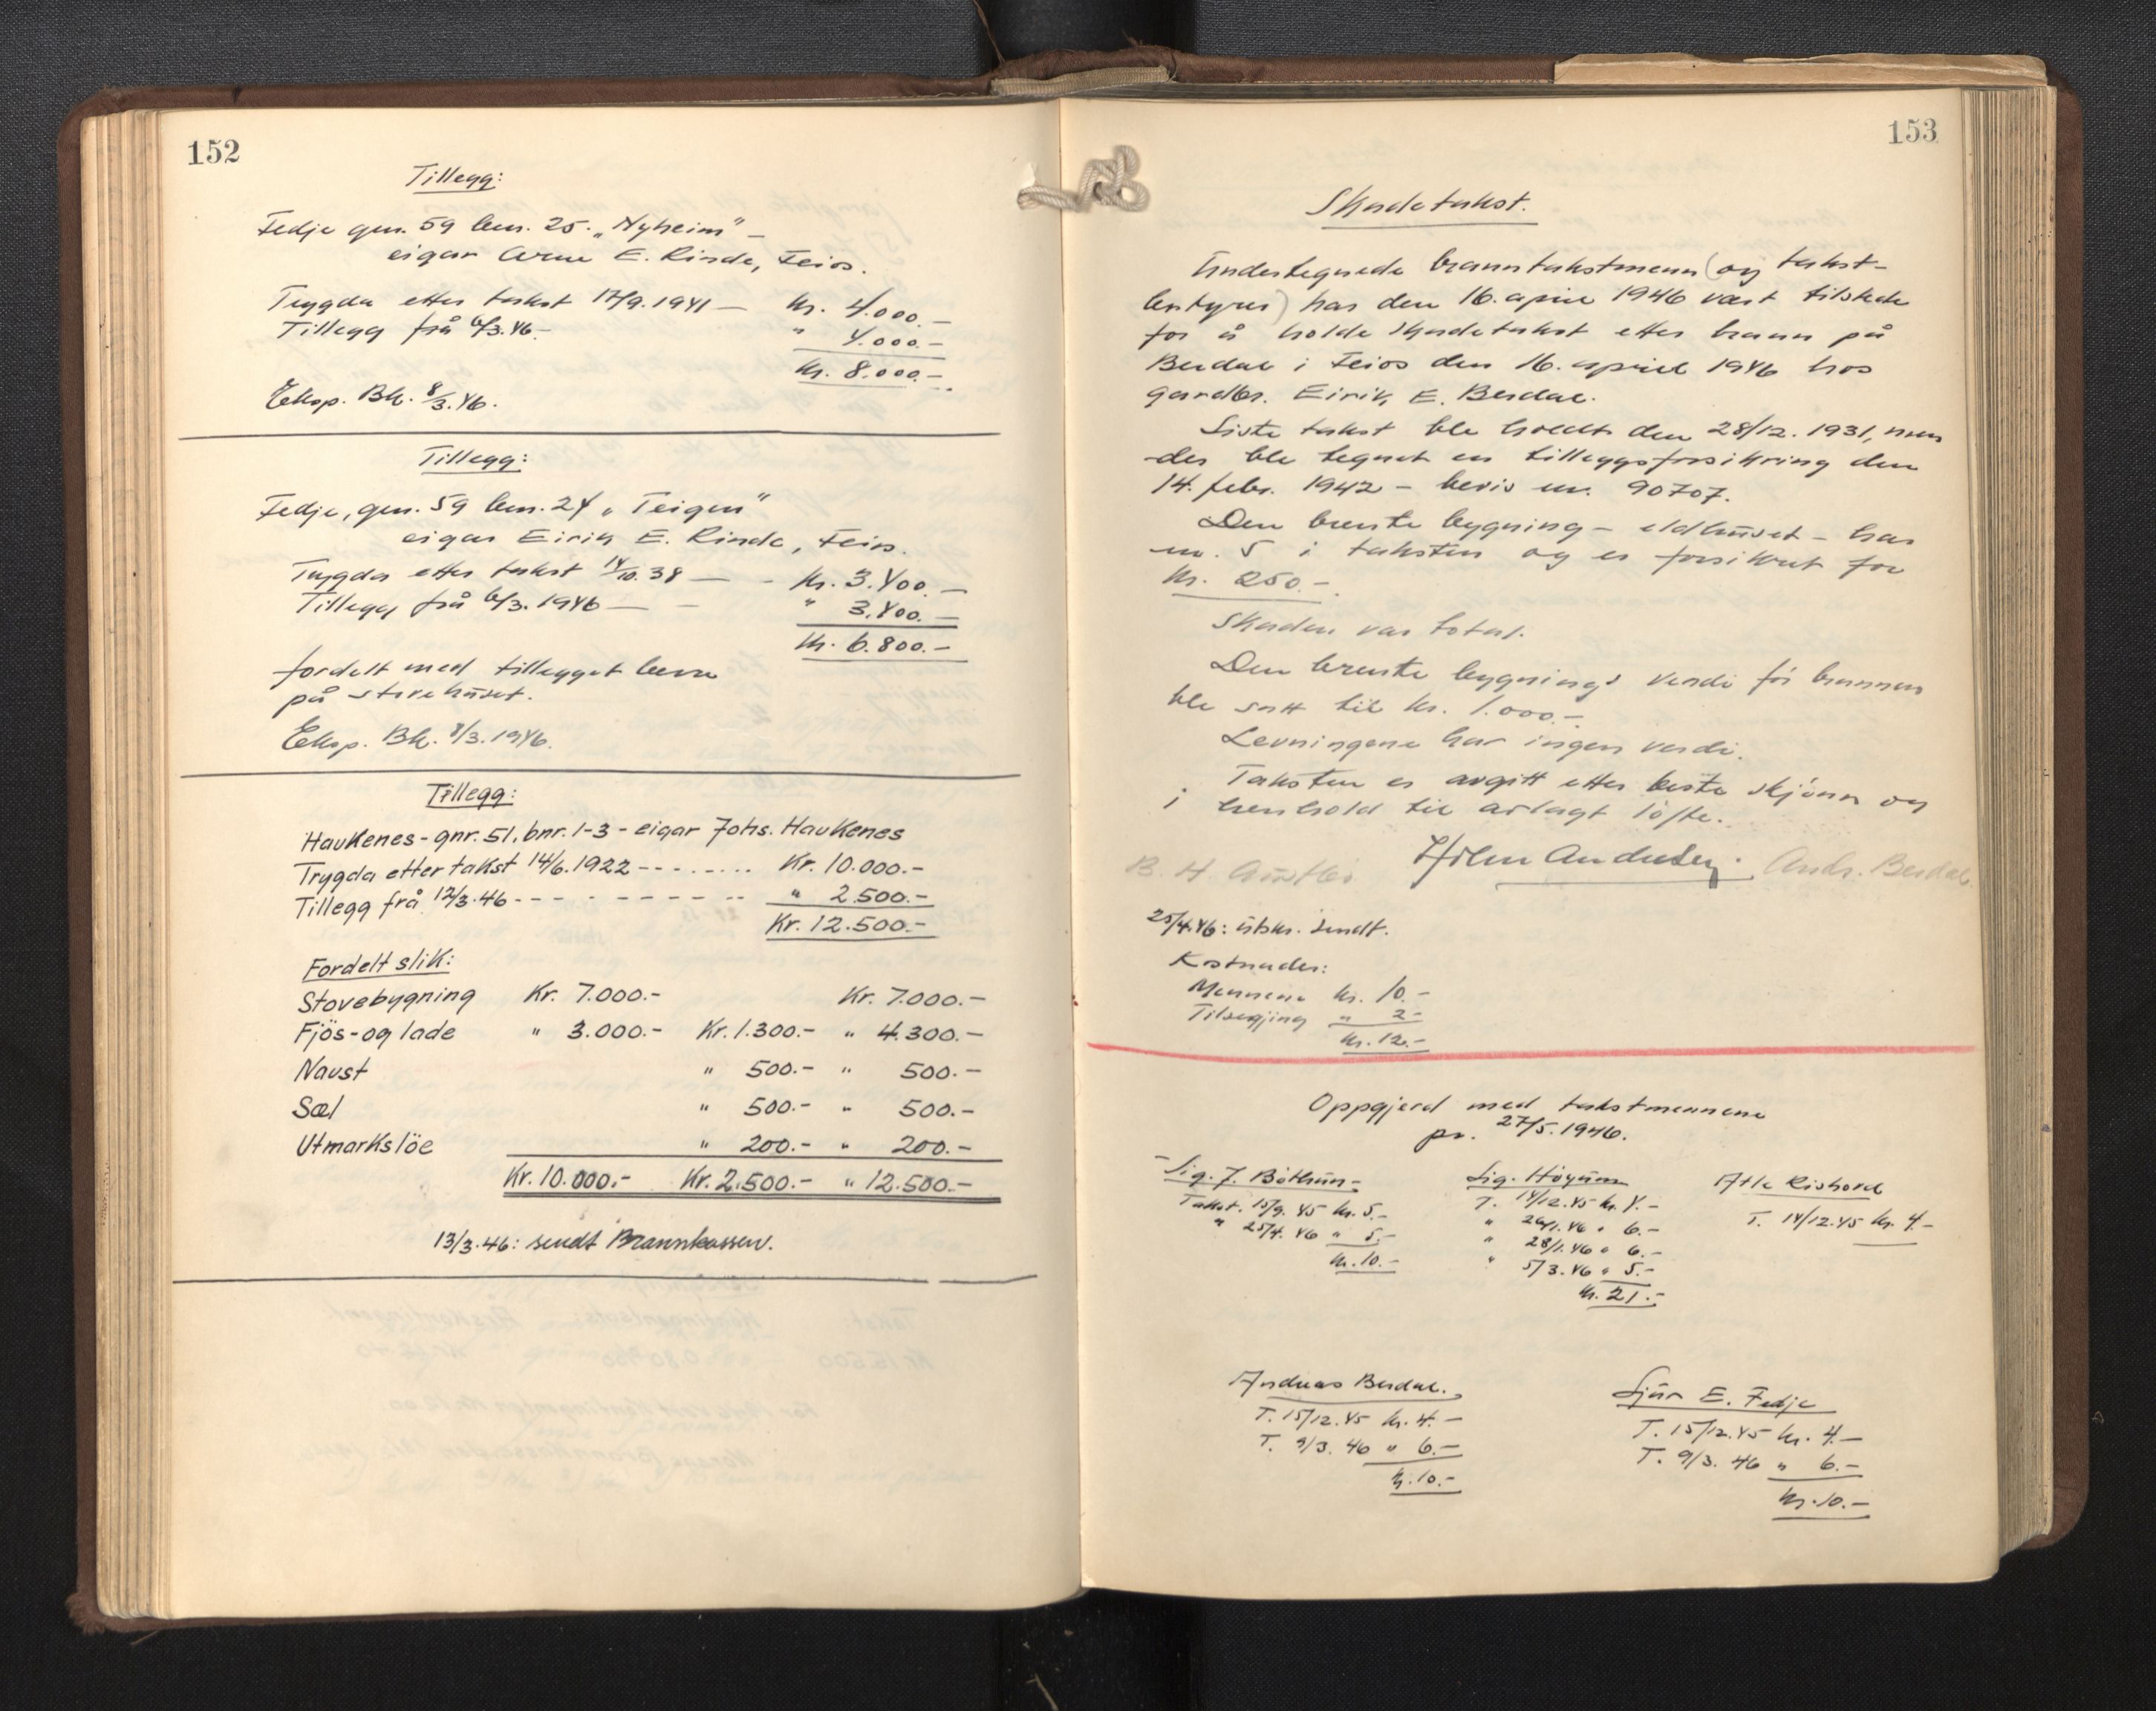 152
Tillegg:
Fedje gnr. 59 bnr. 25. „Nyheim” –
eigar Arne E. Rinde, Feios.
Trygda etter takst 17/9.1941 — Kr. 4.000.–
Tillegg frå 6/3.46.– " 4.000.–
Kr. 8.000.–
Eksp. Bk. 8/3.46.
Tillegg:
Fedje, gnr. 59 bnr. 24 „Teigen”
eigar Eirik E. Rinde, Feios.
Trygda etter takst 14/10.38 — - Kr. 3.400.–
Tillegg frå 6/3.1946 — – " 3.400.–
Kr. 6.800.–
fordelt med tillegget berre
på stovehuset.
Eksp. Bk. 8/3.1946.
Tillegg:
Haukenes - gnr. 51, bnr. 1-3 - eigar Johs. Haukenes
Trygda etter takst 14/6.1922 -------- Kr. 10.000.–
Tillegg frå 12/3.46 - - - - - - - - - " 2.500.–
Kr. 12.500.–
Fordelt slik:
Stovebygning Kr. 7.000.– Kr. 7.000.–
Fjös- og lade " 3.000.– Kr. 1.300.– " 4.300.–
Naust " 500.– " 500.–
Sæl " 500.– " 500.–
Utmarkslöe " 200.– " 200.–
Kr. 10.000.– Kr. 2.500.– " 12.500.–
13/3.46: sendt Brannkassen.
153
Skadetakst.
Undertegnede branntakstmenn (og takst-
bestyrer) har den 16. april 1946 vært tilstede
for å holde skadetakst etter brann på
Berdal i Feios den 16. april 1946 hos
gardbr. Eirik E. Berdal.
Siste takst ble holdt den 28/12. 1931, men
der ble tegnet en tilleggsforsikring den
14. febr. 1942 – bevis nr. 90707.
Den brente bygning – eldhuset – har
nr. 5 i taksten og er forsikret for
Kr. 250.–
Skaden var total.
Den brente bygnings verdi för brannen
ble satt til kr. 1.000.–
Levningene har ingen verdi.
Taksten er avgitt etter beste skjönn og
i henhold til avlagt löfte.
B. H. Hilm Andersen. Andr. Berdal
25/4.46: utskr. sendt.
Kostnader:
Mennene kr. 10.–
Tilsegjing " 2–
Kr. 12.–
Oppgjerd med takstmennene
pr. 27/5.1946.
Sig. J. Böthun
Takst. 15/9. 45 Kr. 5.–
" 25/4. 46 " 5.–
Kr. 10.–
Sig. Höyum
T. 14/12.45 kr. 4.–
" 26/1.46 " 6.–
" 28/1.46 " 6.–
" 5/3.46 " 5.–
Kr. 21.–
Atle
T. 14/12.45 Kr. 4.–
Andreas Berdal.
T. 15/12.45 kr. 4.–
T. 9/3. 46 " 6.–
Kr. 10.–
Sjur E. Fedje
T. 15/12.45 kr. 4.–
T. 9/3. 46 " 6.–
Kr. 10.–